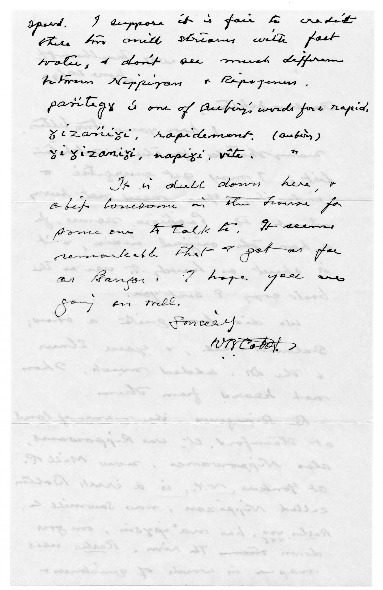 speed. I suppose it is fair to credit
these two mill streams with fast
water, & don't see much difference
between Nippizon & Ripogenus.
pañitegy is one of Aubin's words for a rapid.
yizañiyi, rapidement. (aubin)
yiyizaniyi, napiyi, vite. "
It is dull down here, &
a bit lonesome in the house for
some one to talk to. It seems
remarkable that I got as far
as Bangor. I hope you are
going on well.
Sincerely
W B Cabot